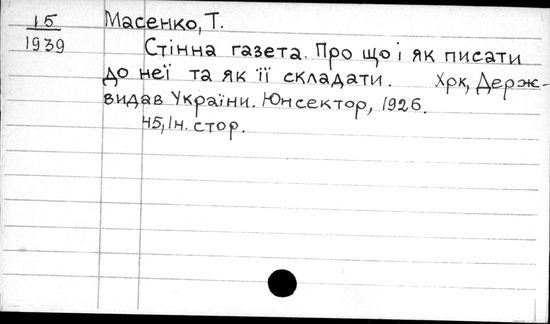 15
1939
Масенко, Т.
Стінна газета. Про що і як писати
до неї та як її складати. Хрк, Держ-
видав України. Юнсектор, 1926.
45, Ін. стор.